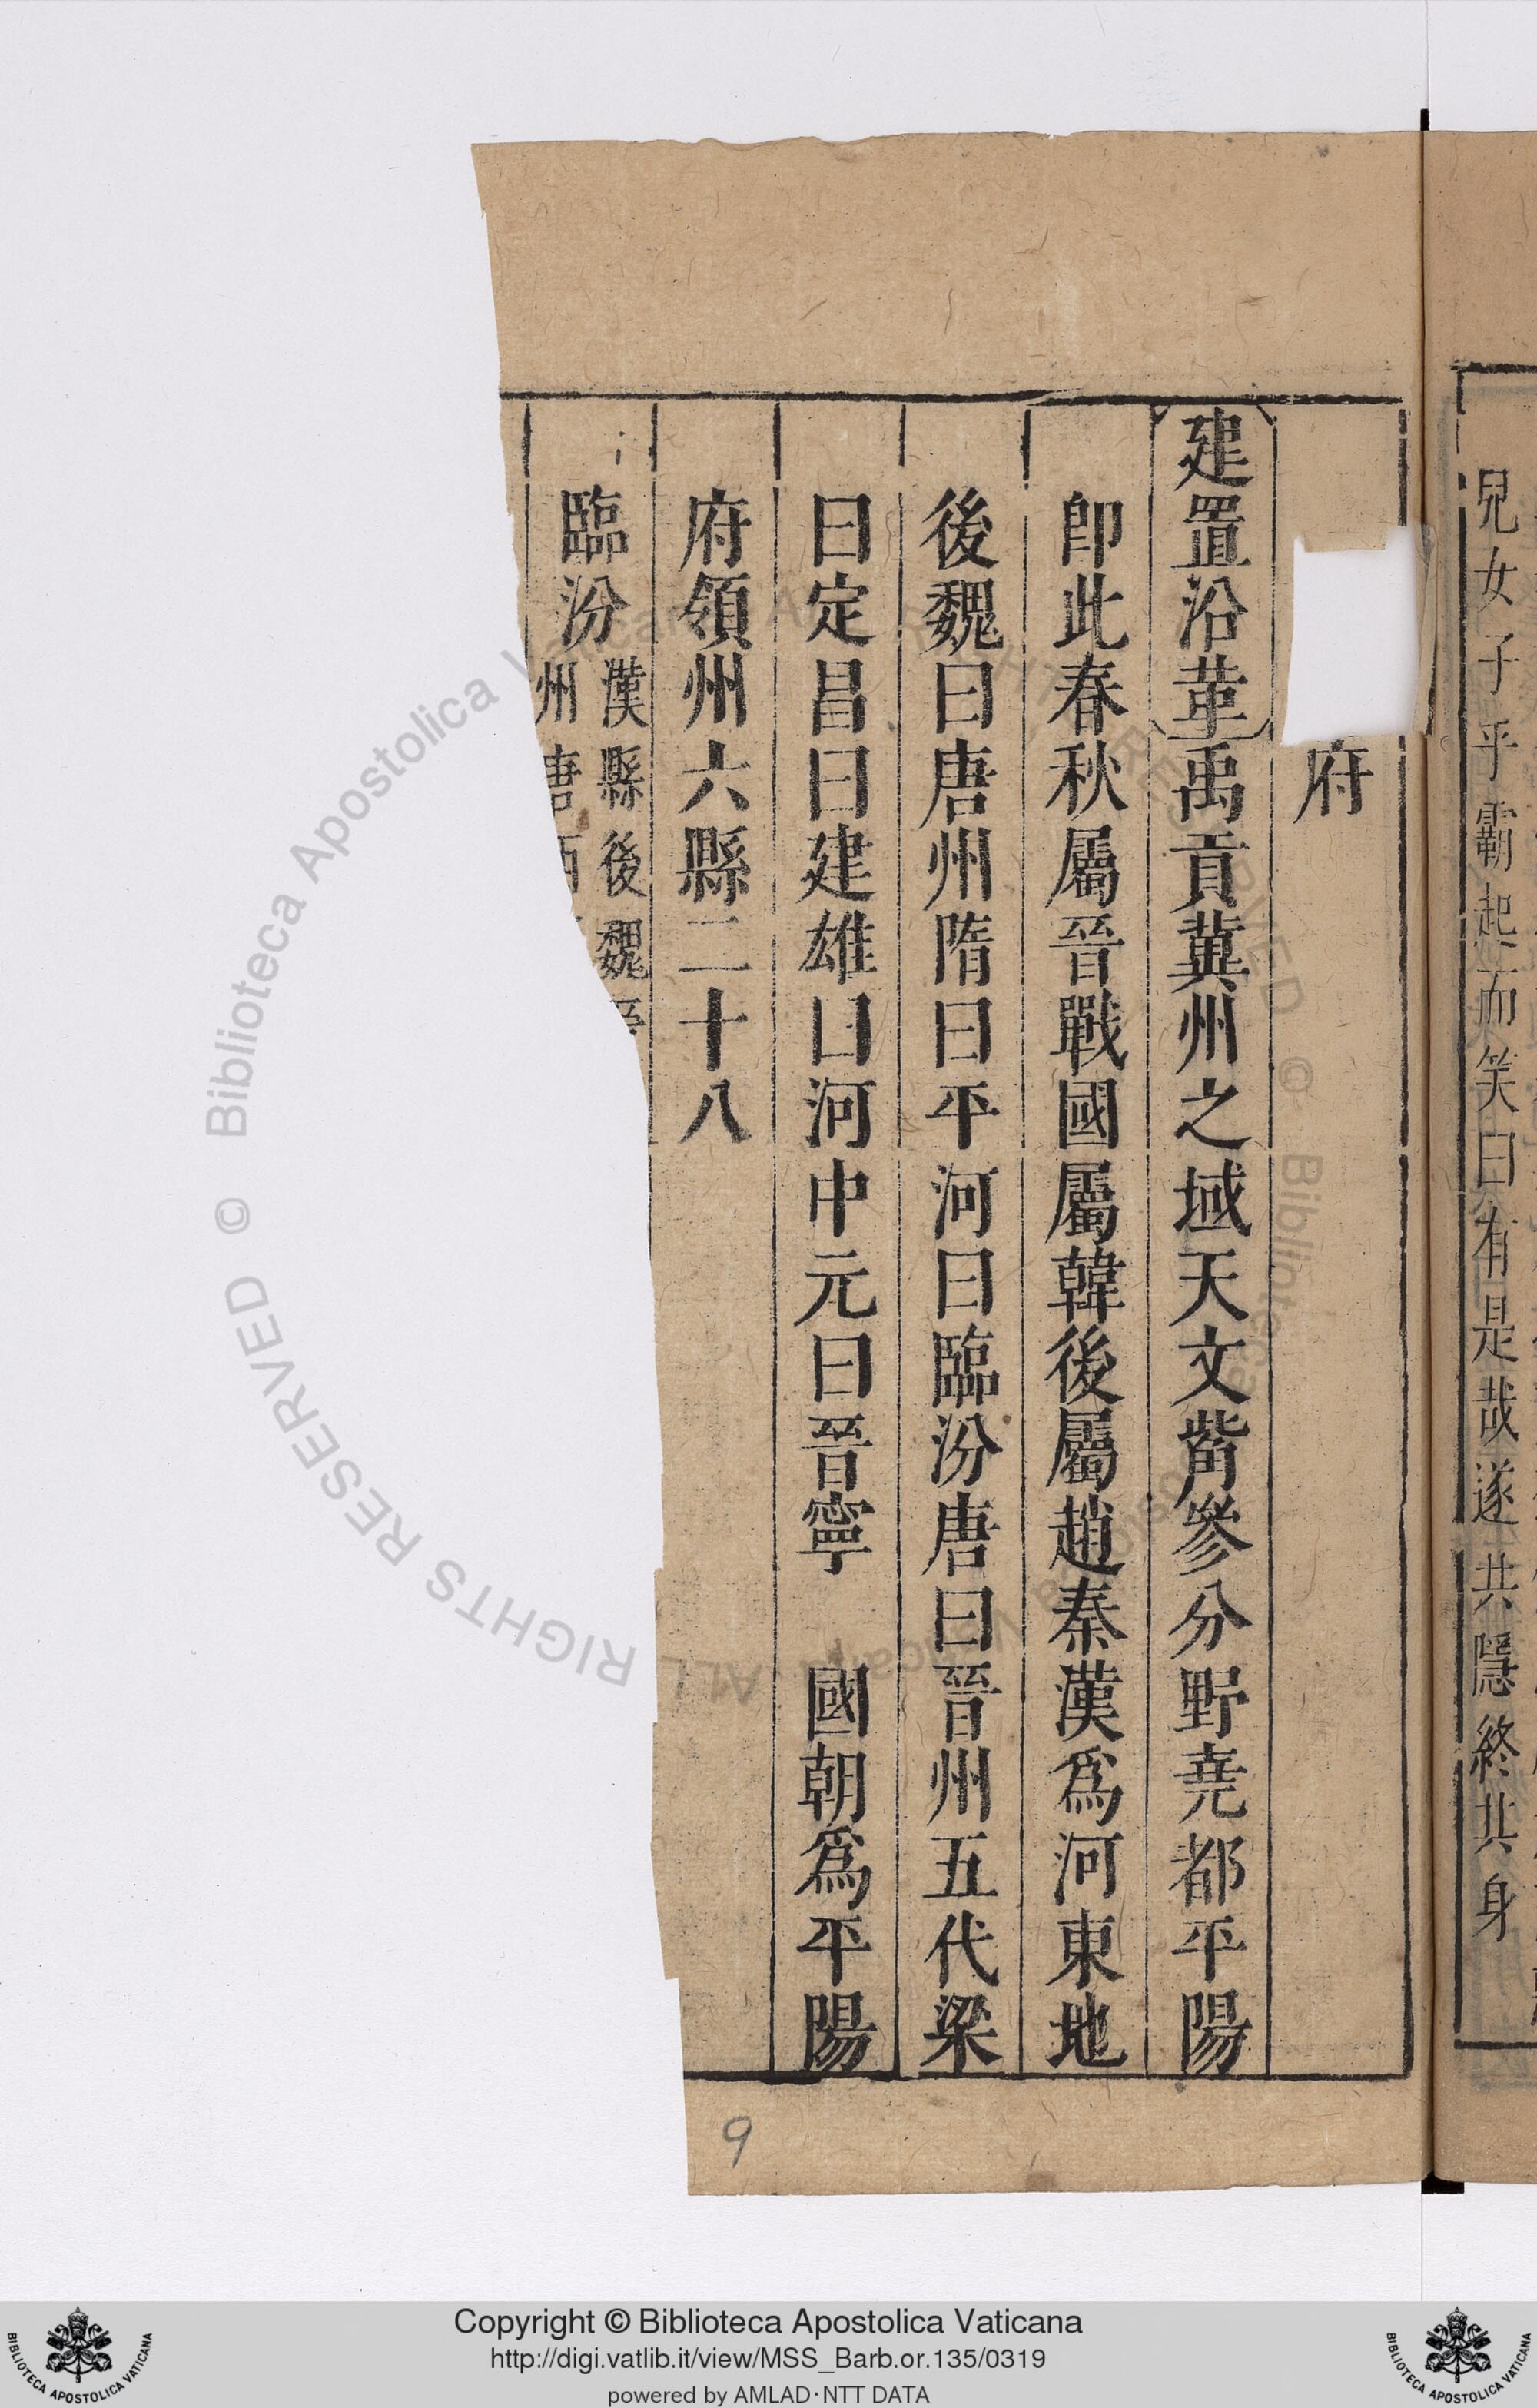 兒女子乎霸起而笑曰有是哉遂共隱終共身
府
建置沿革禹貢冀州之域天文觜參分野堯都平陽
卽此春秋屬晉戰國屬韓後屬趙秦漢爲河東地
後魏曰唐州隋曰平河曰臨汾唐曰晉州五代梁
曰定昌曰建雄曰河中元曰晉寧 國朝爲平陽
府領州六縣二十八
臨汾
漢縣後魏
州唐
9
© Biblioteca Apostolica Vaticana ALL RIGHTS RESERVED
© Biblioteca Apostolica Vaticana ALL RIGHTS RESERVED
BIBLIOTECA APOSTOLICA VATICANA
Copyright © Biblioteca Apostolica Vaticana
http://digi.vatlib.it/view/MSS_Barb.or.135/0319
powered by AMLAD·NTT DATA
BIBLIOTECA APOSTOLICA VATICANA